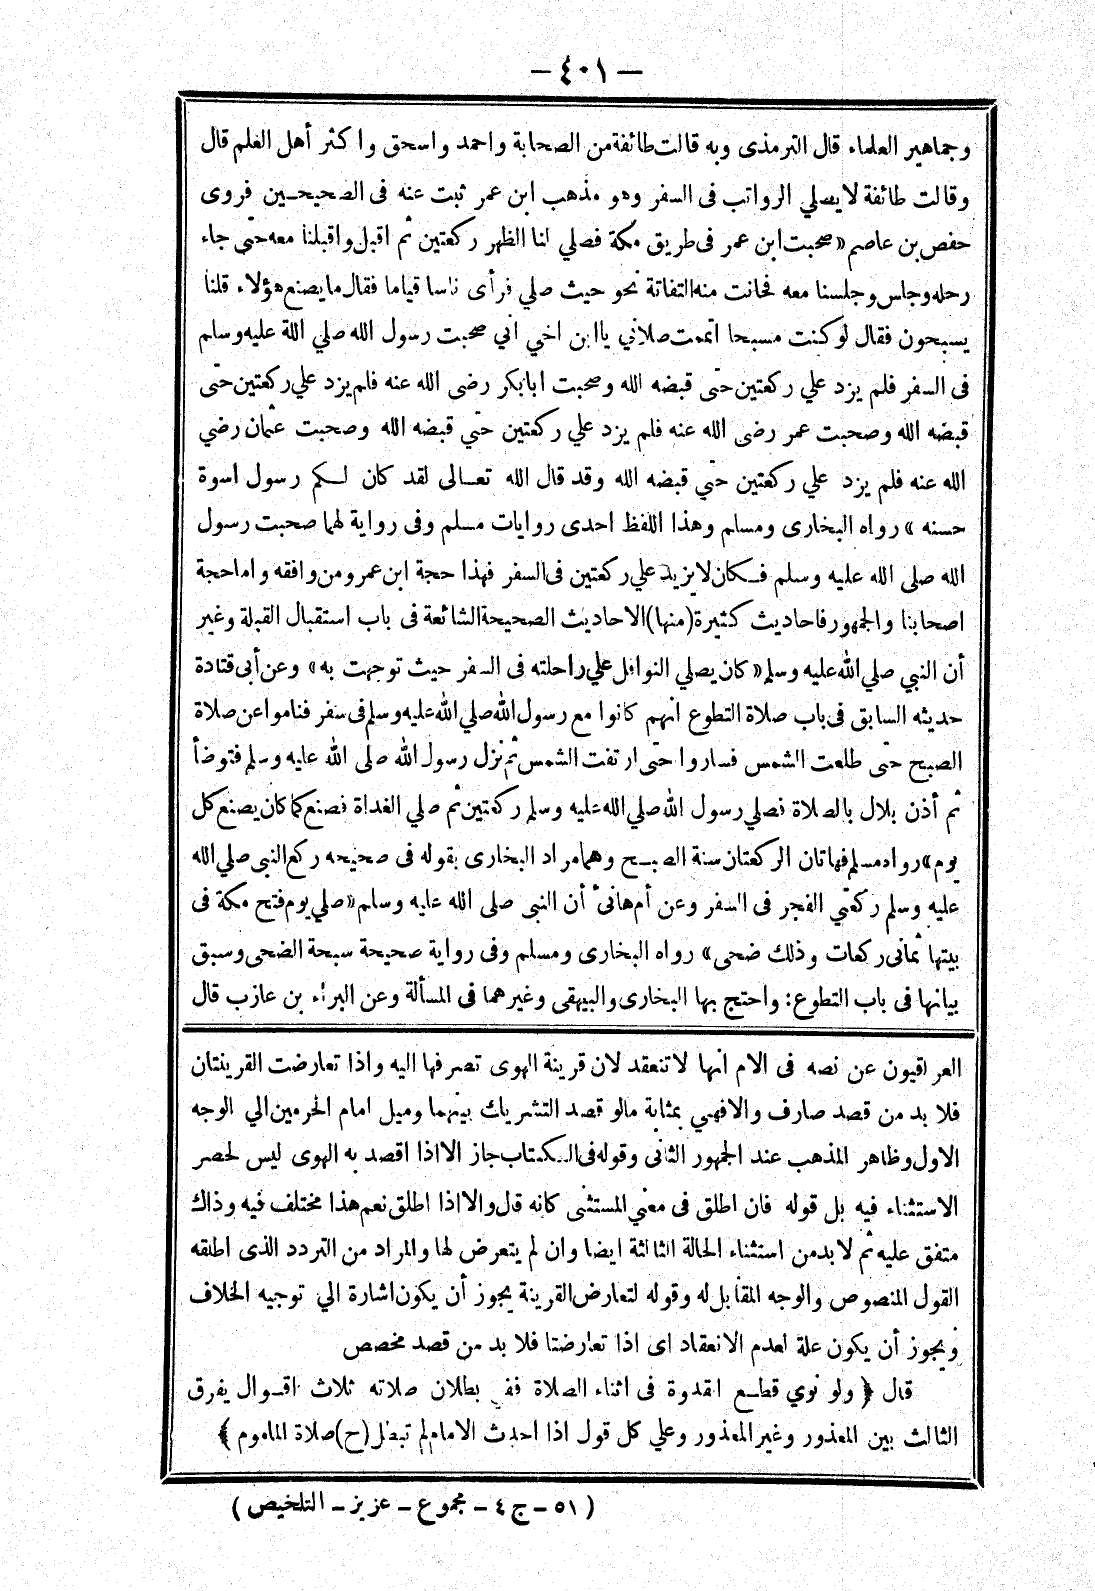 — ٤٠١ —
وجماهير العلماء قال الترمذى وبه قالت طائفة من الصحابة واحمد واسحق واكثر أهل العلم قال
وقالت طائفة لا يصلي الرواتب فى السفر وهو مذهب ابن عمر ثبت عنه فى الصحيحين فروى
حفص بن عاصم « صحبت ابن عمر فى طريق مكة فصلي لنا الظهر ركعتين ثم اقبل واقبلنا معه حتى جاء
رحله وجلس وجلسنا معه فحانت منه التفاتة نحو حيث صلي فرأى ناسا قياما فقال ما يصنع هؤلاء قلنا
يسبحون فقال لو كنت مسبحا اتممت صلاتي يا ابن اخي اني صحبت رسول الله صلي الله عليه وسلم
فى السفر فلم يزد علي ركعتين حتى قبضه الله وصحبت ابا بكر رضى الله عنه فلم يزد علي ركعتين حتى
قبضه الله وصحبت عمر رضى الله عنه فلم يزد علي ركعتين حتي قبضه الله وصحبت عثمان رضي
الله عنه فلم يزد علي ركعتين حتي قبضه الله وقد قال الله تعالى لقد كان لكم رسول اسوة
حسنه » رواه البخارى ومسلم وهذا اللفظ احدى روايات مسلم وفى رواية لهما صحبت رسول
الله صلى الله عليه وسلم فكان لا يزيد علي ركعتين فى السفر فهذا حجة ابن عمر ومن وافقه واما حجة
اصحابنا والجمهور فاحاديث كثيرة (منها) الاحاديث الصحيحة الشائعة فى باب استقبال القبلة وغير
أن النبي صلي الله عليه وسلم « كان يصلي النوافل علي راحلته فى السفر حيث توجهت به » وعن أبى قتادة
حديثه السابق فى باب صلاة التطوع انهم كانوا مع رسول الله صلي الله عليه وسلم فى سفر فناموا عن صلاة
الصبح حتى طلعت الشمس فساروا حتى ارتفت الشمس ثم نزل رسول الله صلى الله عليه وسلم فتوضأ
ثم أذن بلال بالصلاة فصلي رسول الله صلي الله عليه وسلم ركعتين ثم صلي الغداة فصنع كما كان يصنع كل
يوم » رواه مسلم فهاتان الركعتان سنة الصبح وهما مراد البخارى بقوله فى صحيحه ركع النبى صلي الله
عليه وسلم ركعتي الفجر فى السفر وعن أم هانئ أن النبى صلى الله عليه وسلم « صلي يوم فتح مكة فى
بيتها ثمانى ركعات وذلك ضحى » رواه البخارى ومسلم وفى رواية صحيحة سبحة الضحى وسبق
بيانها فى باب التطوع : واحتج بها البخارى والبيهقى وغيرهما فى المسألة وعن البراء بن عازب قال
العراقيون عن نصه فى الام انها لا تنعقد لان قرينة الهوى تصرفها اليه واذا تعارضت القرينتان
فلا بد من قصد صارف والا فهي بمثابة مالو قصد التشريك بينهما وميل امام الحرمين الي الوجه
الاول وظاهر المذهب عند الجمهور الثانى وقوله فى الكتاب جاز الا اذا اقصد به الهوى ليس لحصر
الاستثناء فيه بل قوله فان اطلق فى معني المستثنى كانه قال والا اذا اطلق نعم هذا مختلف فيه وذاك
متفق عليه ثم لا بد من استثناء الحالة الثالثة ايضا وان لم يتعرض لها والمراد من التردد الذى اطلقه
القول المنصوص والوجه المقابل له وقوله لتعارض القرينة يجوز أن يكون اشارة الي توجيه الخلاف
ويجوز أن يكون علة لعدم الانعقاد اى اذا تعارضتا فلا بد من قصد مخصص
قال ﴿ ولو نوي قطع القدوة فى اثناء الصلاة ففي بطلان صلاته ثلاث اقوال يفرق
الثالث بين المعذور وغير المعذور وعلي كل قول اذا احدث الامام لم تبطل (ح) صلاة الماموم ﴾
( ٥١ – ج ٤ – مجموع – عزيز – التلخيص )